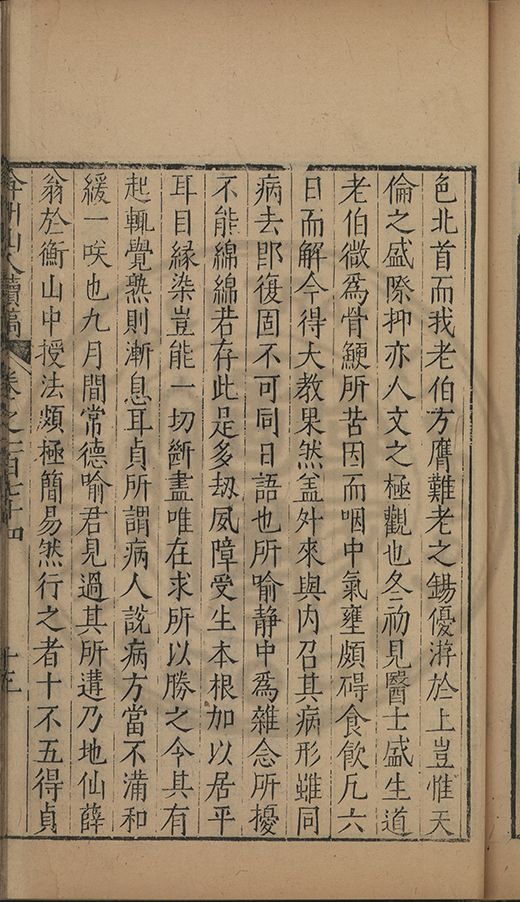 色北首而我老伯方膺難老之錫優游於上豈惟天
倫之盛際抑亦人文之極觀也冬初見醫士盛生道
老伯微爲骨鯁所苦因而咽中氣壅頗碍食飲凡六
日而解今得大教果然盖外來與内召其病形雖同
病去郎復固不可同日語也所喻静中爲雜念所擾
不能綿綿若存此是多刼夙障受生本根加以居平
耳目緣染豈能一切斷盡唯在求所以勝之今其有
起輒覺熟則漸息耳貞所謂病人說病方當不滿和
緩一咲也九月間常德喻君見過其所遘乃地仙薛
翁於衡山中授法頗極簡易然行之者十不五得貞
弇州山人續稿 卷之一百七十四 十二